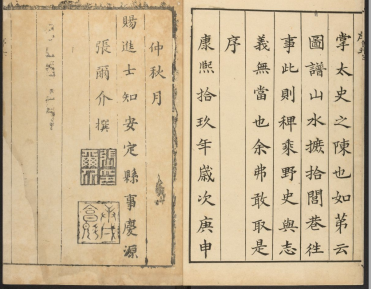 掌太史之陳也如第云
圖譜山水摭拾閭巷徃
事此則稗乘野史與志
義無當也余弗敢取是
序
康熙拾玖年嵗次庚申
仲秋月
賜進士知安定縣事慶源
張爾介撰